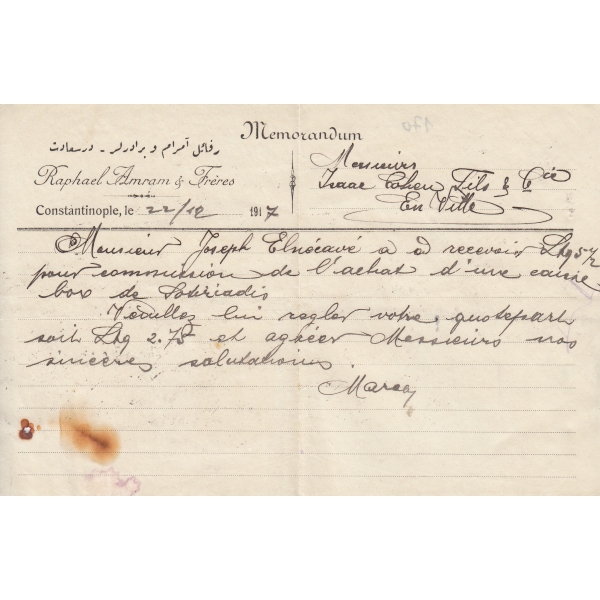 170
Memorandum
رفائل آمرام و برادرلر - درسعادت
Raphael Amram & Frères
Messieurs
Isaac Cohen Fils & Cie
En Ville
Constantinople, le 22/12 1917
Monsieur Joseph Elnécavé a à recevoir Ltq 5 1/2
pour commission de l'achat d'une caisse
box de Sotiriadis
Veuillez lui regler votre quotepart
soit Ltq 2.75 et agréer Messieurs nos
sincères salutations.